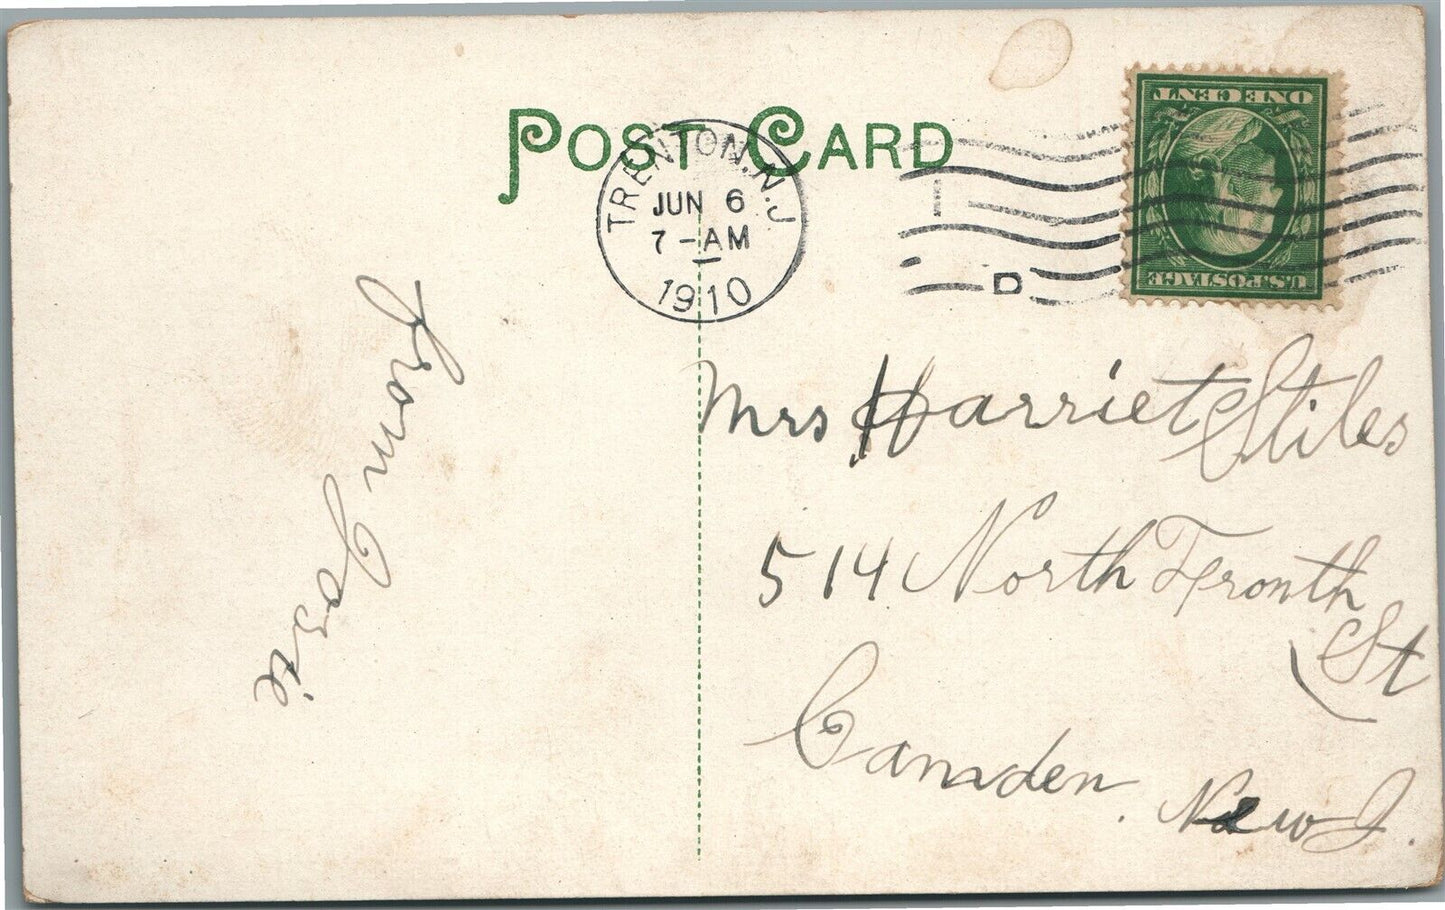 POST CARD
TRENTON, N.J.
JUN 6
7-AM
1910
D
ONE CENT
U.S. POSTAGE
from Josie
Mrs Harriet Stiles
514 North Fronth
St
Camden. New J.